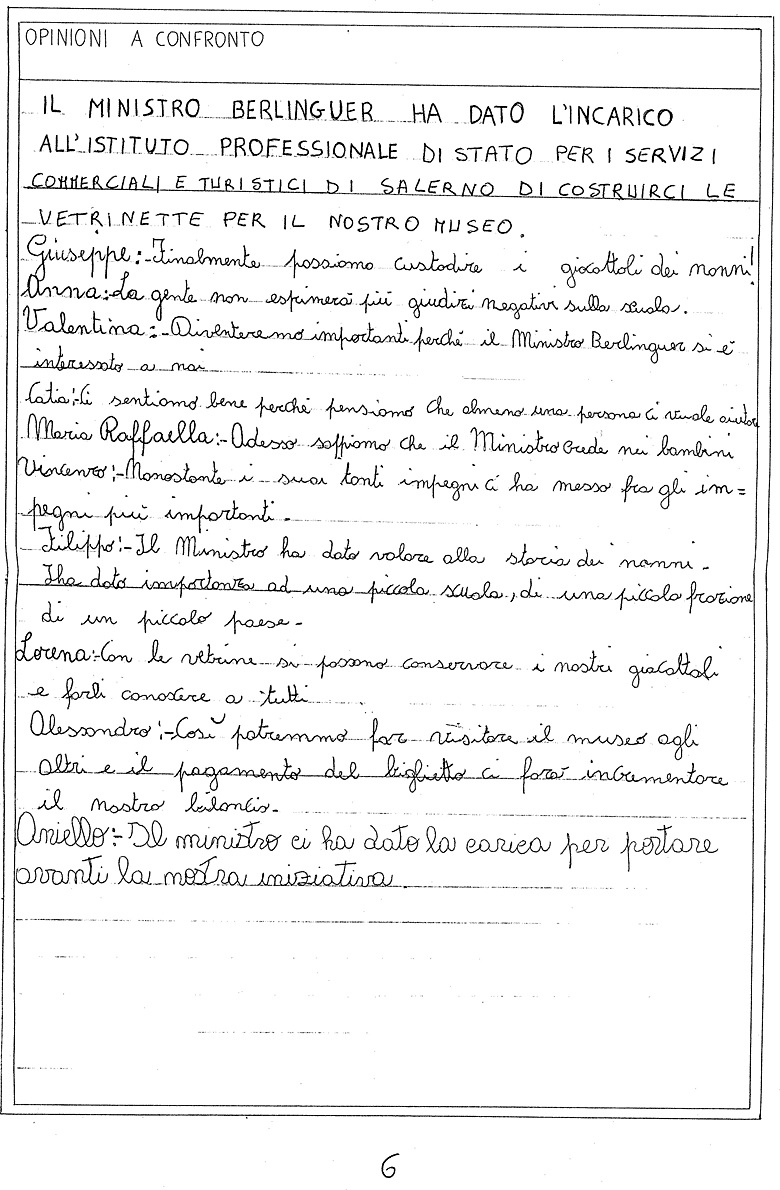 OPINIONI A CONFRONTO
IL MINISTRO BERLINGUER HA DATO L'INCARICO
ALL'ISTITUTO PROFESSIONALE DI STATO PER I SERVIZI
COMMERCIALI E TURISTICI DI SALERNO DI COSTRUIRCI LE
VETRINETTE PER IL NOSTRO MUSEO.
Giuseppe:-Finalmente possiamo custodire i giocattoli dei nonni!
Anna:-La gente non esprimerà più giudizi negativi sulla scuola.
Valentina:-Diventeremo importanti perché il Ministro Berlinguer si è
interessato a noi
Catia:-Ci sentiamo bene perché pensiamo che almeno una persona ci vuole aiutare
Maria Raffaella:-Adesso sappiamo che il Ministro crede nei bambini
Vincenzo:-Nonostante i suoi tanti impegni ci ha messo fra gli im=
pegni più importanti.
Filippo:-Il Ministro ha dato valore alla storia dei nonni.
Iha dato importanza ad una piccola scuola, di una piccola frazione
di un piccolo paese.
Lorena:-Con le vetrine si possono conservare i nostri giocattoli
e farli conoscere a tutti
Alessandro:-Così potremmo far visitare il museo agli
altri e il pagamento del biglietto ci farà incrementare
il nostro bilancio.
Aniello:-Il ministro ci ha dato la carica per portare
avanti la nostra iniziativa.
6